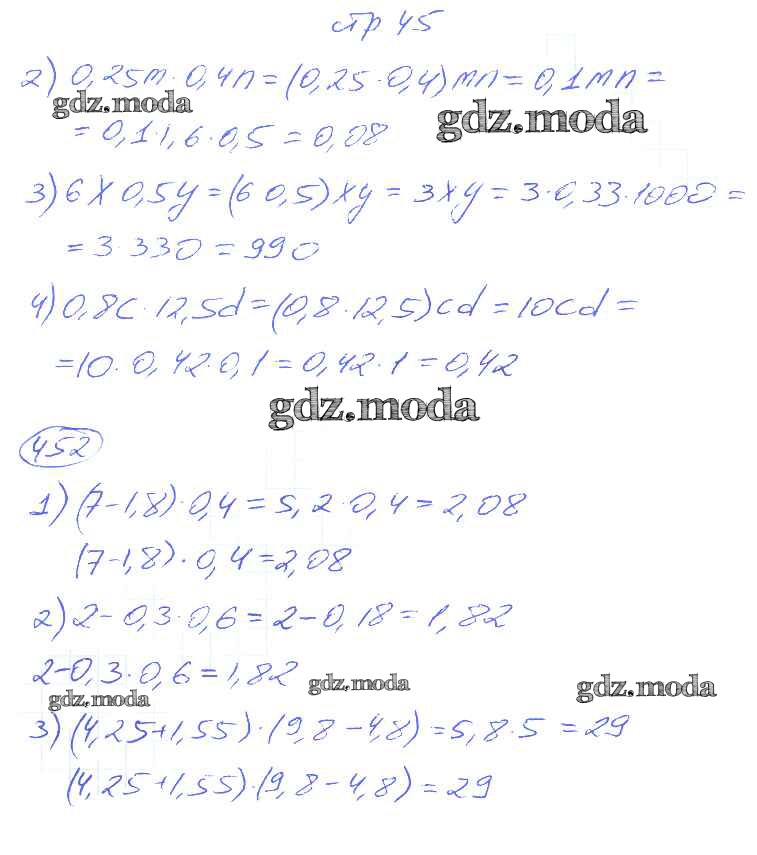 стр 45
2) 0,25m · 0,4n = (0,25 · 0,4) mn = 0,1mn =
gdz.moda
gdz.moda
= 0,1 · 1,6 · 0,5 = 0,08
3) 6x 0,5y = (6 0,5) xy = 3xy = 3 · 0,33 · 1000 =
= 3 · 330 = 990
4) 0,8c · 12,5d = (0,8 · 12,5) cd = 10cd =
= 10 · 0,42 · 0,1 = 0,42 · 1 = 0,42
gdz.moda
452
1) (7-1,8) · 0,4 = 5,2 · 0,4 = 2,08
(7-1,8) · 0,4 = 2,08
2) 2 - 0,3 · 0,6 = 2 - 0,18 = 1,82
2-0,3 · 0,6 = 1,82
gdz.moda
gdz.moda
gdz.moda
3) (4,25+1,55) · (9,8-4,8) = 5,8 · 5 = 29
(4,25+1,55) · (9,8-4,8) = 29